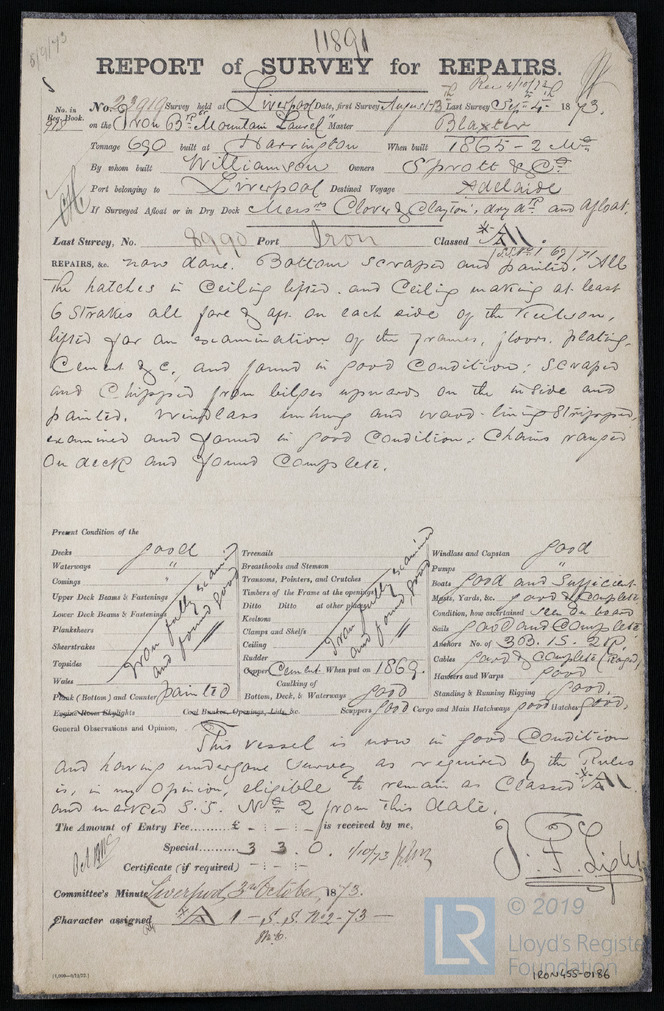 11891
5/9/73
REPORT of SURVEY for REPAIRS.
Rec 4/10/73
No. in Reg. Book. No. 23919 Survey held at Liverpool Date, first Survey August 13th Last Survey Sept. 4th 1873.
978 on the Iron Bqe "Mountain Laurel" Master Blaxter
Tonnage 690 built at Harrington When built 1865 - 2 Mo
By whom built Williamson Owners Sprott & Co
Port belonging to Liverpool Destined Voyage Adelaide
If Surveyed Afloat or in Dry Dock Messrs Clover & Clayton's dry dk and Afloat.
Last Survey, No. 8990 Port Iron Classed A1.
REPAIRS, &c. now done. Bottom scraped and painted. All
the hatches in Ceiling lifted. and Ceiling making at least
6 Strakes all fore & aft. on each side of the Keelson,
lifted for an examination of the frames, floors. plating.
Cement &c, and found in good Condition; Scraped
and Chipped from bilges upwards on the inside and
painted. Windlass unhung and wood-lining stripped,
examined and found in good Condition: Chains ranged
on deck and found Complete.
Present Condition of the
Decks good
Waterways "
Comings "
Upper Deck Beams & Fastenings
Lower Deck Beams & Fastenings
Planksheers
Sheerstrakes
Topsides
Wales
Iron fully examined
and found good
Plank (Bottom) and Counter painted
Engine Room Skylights
Treenails
Breasthooks and Stemson
Transoms, Pointers, and Crutches
Timbers of the Frame at the openings
Ditto Ditto at other places
Keelsons
Clamps and Shelfs
Ceiling
Rudder
Iron fully examined
and found good
Copper Cement When put on 1869.
Caulking of
Bottom, Deck, & Waterways good
Coal Bunker, Openings, Lids, &c.
Scuppers good Cargo and Main Hatchways good Hatches good,
Windlass and Capstan good
Pumps "
Boats good and Sufficient
Masts, Yards, &c. good & Complete
Condition, how ascertained seen on board
Sails good and Complete
Anchors No. of 3B. 1S. 2K.
Cables good & complete (ranged)
Hawsers and Warps good
Standing & Running Rigging good.
General Observations and Opinion, This vessel is now in good Condition
and having undergone Survey as required by the Rules
is, in my Opinion, eligible to remain as Classed A1
and marked S.S. No 2 from this date.
The Amount of Entry Fee......... £ - : - : - is received by me,
Special......... 3 3. 0. 1/10/73
Certificate (if required) - : - : -
J. F. Light
Committee's Minute Liverpool, 3rd October, 1873.
Character assigned A 1 - S.S. No 2 - 73 -
(1,000—9/12/72)
© 2019
LR
Lloyd's Register
Foundation
IRON455-0186